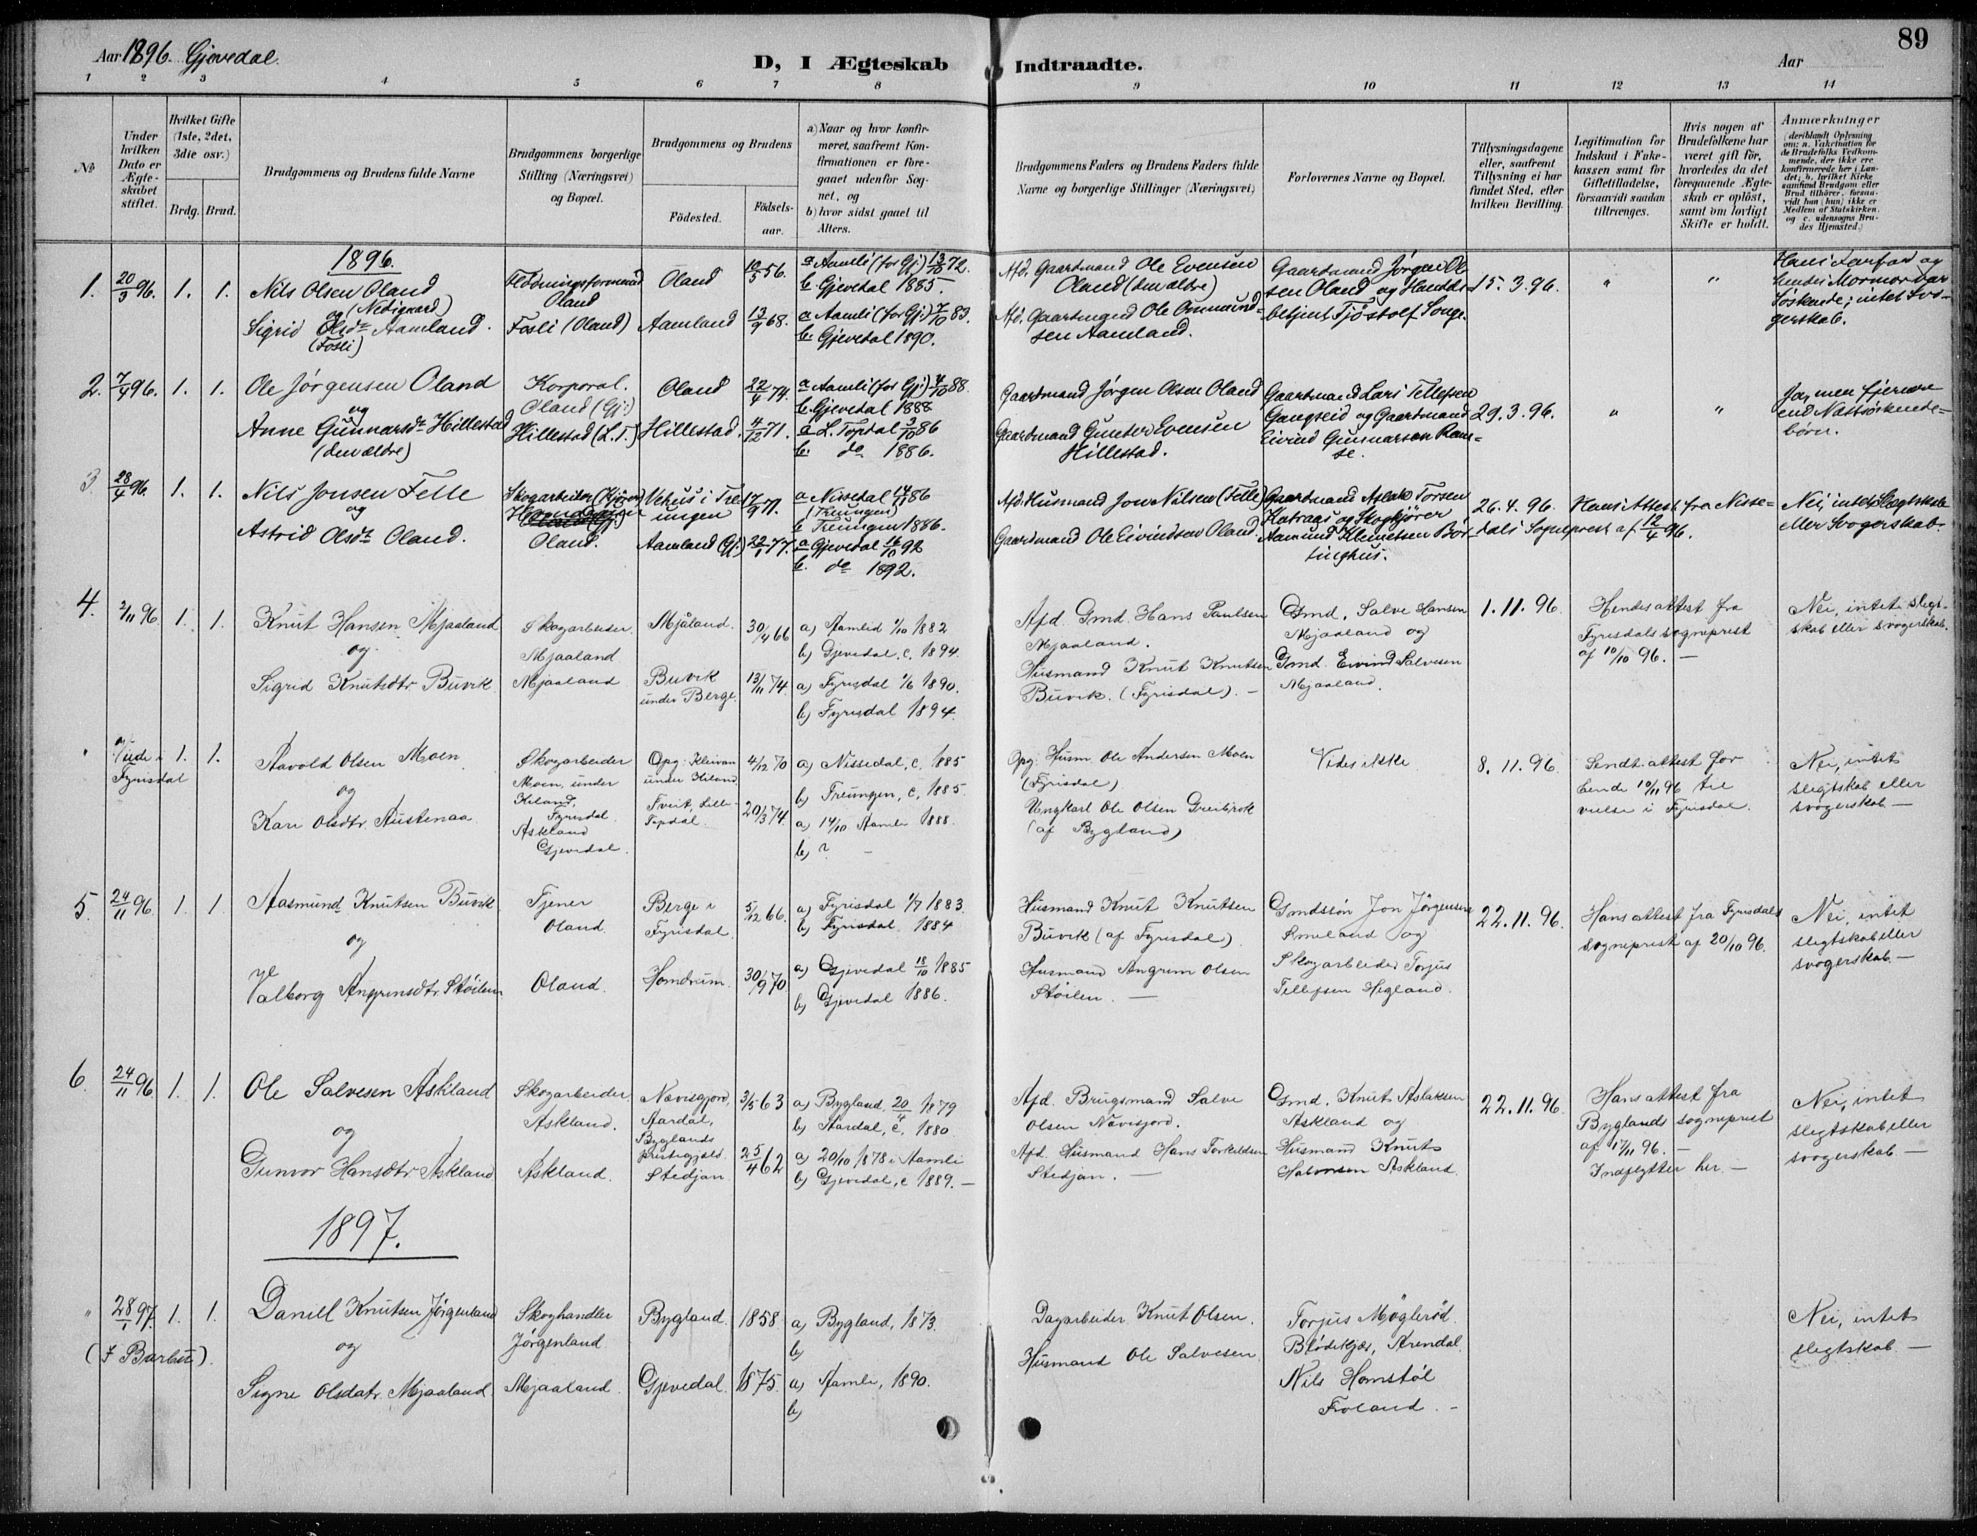 Aar 1896. Gjevedal.
D, I Ægteskab Indtraadte.
Aar
89
1 2 3 4 5 6 7 8 9 10 11 12 13 14
№
Under hvilken Dato er Ægteskabet stiftet.
Hvilket Gifte (1ste, 2det, 3die osv.)
Brdg. Brud.
Brudgommens og Brudens fulde Navne
Brudgommens borgerlige Stilling (Næringsvei) og Bopæl.
Brudgommens og Brudens
Födested.
Födsels-aar.
a) Naar og hvor konfirmeret, saafremt Konfirmationen er foregaaet udenfor Sognet, og
b) hvor sidst gaaet til Alters.
Brudgommens Faders og Brudens Faders fulde Navne og borgerlige Stillinger (Næringsvei)
Forlovernes Navne og Bopæl.
Tillysningsdagene eller, saafremt Tillysning ei har fundet Sted, efter hvilken Bevilling.
Legitimation for Indskud i Enkekassen samt for Giftetilladelse, forsaavidt saadan tiltrænges.
Hvis nogen af Brudefolkene har været gift för, hvorledes da det foregaaende Ægteskab er oplöst, samt om lovligt Skifte er holdt.
Anmærkninger
(deriblandt Oplysning om: a. Vakcination for de Brudefolks Vedkommende, der ikke ere konfirmerede her i Landet; b. hvilket Kirkesamfund Brudgom eller Brud tilhörer, forsaavidt han (hun) ikke er Medlem af Statskirken, og c. udensogns Brudes Hjemsted.)
1896.
1. 20/3 96. 1. 1.
Nils Olsen Oland
(Nedigaard)
og
Sigrid Olsdr Aamland.
(Fosli)
Flödningsformand
Oland
Fosli (Oland)
Oland
Aamland
10/5 56.
13/9 68.
a Aamli (for Gj:) 13/10 72.
b. Gjevedal 1885.
a Aamli (for Gj:) 7/10 83.
b. Gjevedal 1890.
Afd. Gaardmand Ole Evensen
Oland (den ældre)
Afd. Gaardmand Ole Omund=
sen Aamland.
Gaardmand Jörgen Ol
sen Oland og Handels
betjent Tjöstolf Songe.
15.3.96.
" "
Hans Farfar og
hendes Mormor var
Söskende; intet Svo=
gerskab.
2. 7/4 96. 1. 1.
Ole Jörgensen Oland
og
Anne Gunnarsdr Hillestad
(den ældre)
Korporal.
Oland (Gj:)
Hillestad (L.T.)
Oland
Hillestad.
22/4 74.
4/12 71.
a Aamli (for Gj:) 4/10 88.
b. Gjevedal 1888
a L. Topdal 3/10 86
b. do 1886.
Gaardmand Jörgen Olsen Oland
Gaardmand Gunder Evensen
Hillestad.
Gaardmand Lars Tellefsen
Gangseid og Gaardmand
Eivind Gunnarsen Ram=
se.
29.3.96.
" "
Ja, men fjernere
end Næstsöskende=
börn.
3. 28/4 96. 1. 1.
Nils Jonsen Felle
og
Astrid Olsdr Oland.
Skogarbeider (Kjörer)
Oland.
Vehus i Tre
ungen
Aamland (Gj:)
17/9 71.
22/7 77.
a Nissedal 14/11 86
(Treungen)
b Treungen 1886.
a Gjevedal 16/10 92
b. do 1892.
Afd. Husmand Jon Nilsen (Felle)
Gaardmand Ole Eivindsen Oland.
Gaardmand Aslak Torsen
Katrags og Skogkjörer
Aamund Klemetsen Bör
tinghus.
26.4.96.
Hans Attest fra Nisse=
dals Sogneprest af 12/4 96.
Nei, intet Slegtskab
eller Svogerskab.
4. 2/11 96 1. 1.
Knut Hansen Mjaaland
og
Sigrid Knutsdtr Buvik
Skogarbeider.
Mjaaland
Mjaaland
Mjåland.
Buvik
under Berge.
30/4 66
13/11 74
a) Aamlid 1/10 1882
b) Gjevedal, c. 1894.
a) Fyrisdal 1/6 1890.
b) Fyrisdal 1894.
Afd. Gmd. Hans Paulsen
Mjaaland.
Husmand Knut Knutsen
Buvik. (Fyrisdal). —
Gmd. Salve Hansen
Mjaaland og
Gmd. Eivind Salvesen
Mjaaland.
1.11.96.
Hendes attest fra
Fyrisdals sogneprest
af 10/10 96. —
Nei, intet slegt-
skab eller svogerskab.
Viede i
Fyrisdal
1. 1.
Aavold Olsen Moen
og
Kari Olsdtr. Austenaa
Skogarbeider
Moen, under
Kiland,
Fyrisdal.
Askland
Gjevedal.
Opg. Kleivan
under Kiland
Tveit, Lille-
Topdal.
4/12 70
20/3 74.
a) Nissedal, c. 1885
b) Treungen, c. 1885.
a) 14/10 Aamli 1888.
b) ? —
Opg. Husm. Ole Andersen Moen
(Fyrisdal)
Ungkarl Ole Olsen Greibrok
(af Bygland)
Vides ikke
8.11.96.
Sendt attest for
hende 10/11 96 til
vielse i Fyrisdal.
Nei, intet
slegtskab eller
svogerskab —
5. 24/11 96 1. 1
Aasmund Knutsen Buvik
og
Valborg Angrimsdtr Stöilen
Tjener
Oland.
Oland.
Berge i
Fyrisdal.
Homdrum.
5/12 66.
30/9 70
a) Fyrisdal 1/7 1883.
b) Fyrisdal 1884
a) Gjevedal 18/10 1885
b) Gjevedal 1886.
Husmand Knut Knutsen
Buvik (af Fyrisdal).
Husmand Angrim Olsen
Stöilen. —
Gmdssön Jon Jörgensen
Rmeland og
Skogarbeider Torjus
Tellefsen Hegland.
22.11.96.
Hans attest fra Fyrisdals
sogneprest af 20/10 96.
Nei, intet
slegtskab eller
svogerskab —
6. 24/11 96 1. 1.
Ole Salvesen Askland
og
Gunvor Hansdtr. Askland
Skogarbeider.
Askland.
Askland.
Nævisgjord,
Aardal,
Byglands
prestegjeld.
Stedjan.
3/5 63
25/4 62
a) Bygland, 20/4 1879
b) Aardal, c. 1880.
a) 20/10 1878 i Aamli
b) Gjevedal, c 1889. —
Afd. Brugsmand Salve
Olsen Nævisjord.
Afd. Husmand Hans Torkildsen
Stedjan. —
Gmd. Knut Aslaksen
Askland og
Husmand Knut
Halvorsen Askland.
22.11.96.
Hans attest fra
Byglands sogneprest
af 17/11 96. —
Indflytter her. —
Nei, intet
slegtskab eller
svogerskab —
1897.
" 28/1 97. 1. 1.
(I Barbu).
Daniell Knutsen Jörgenland
og
Signe Olsdatr. Mjaaland.
Skoghandler
Jörgenland.
Mjaaland.
Bygland.
Gjevedal.
1858.
1875.
a) Bygland, 1873.
b)
a) Aamli, 1890.
b)
Dagarbeider Knut Olsen.
Husmand Ole Salvesen.
Torjus Möglerød.
Blödekjær, Arendal.
Nils Homstøl
Froland. —
Nei, intet
slegtskab —